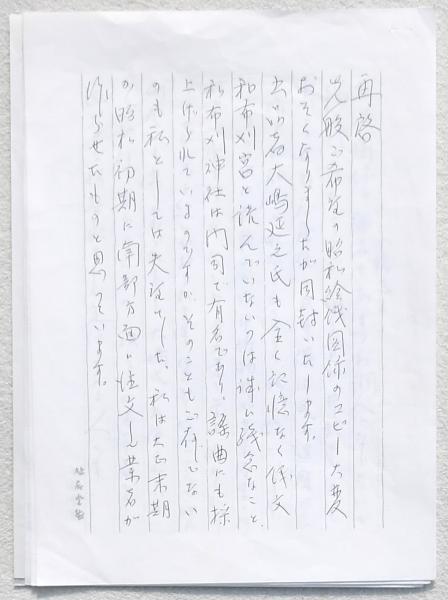 再啓
先般ご希望の昭和絵伎関係のコピー大変
おそくなりましたが同封いたします。
出品者大嶋延之氏も全く記憶なく伎文
和布刈宮と読んでいないのは誠に残念なこと
和布刈神社は門司で有名であり、謡曲にも採
上げられていますのですがそのこともご存じない
のも私としては失望でした、私は大正末期
か昭和初期に南部方面に注文した業者が
作らせたものと思っています。